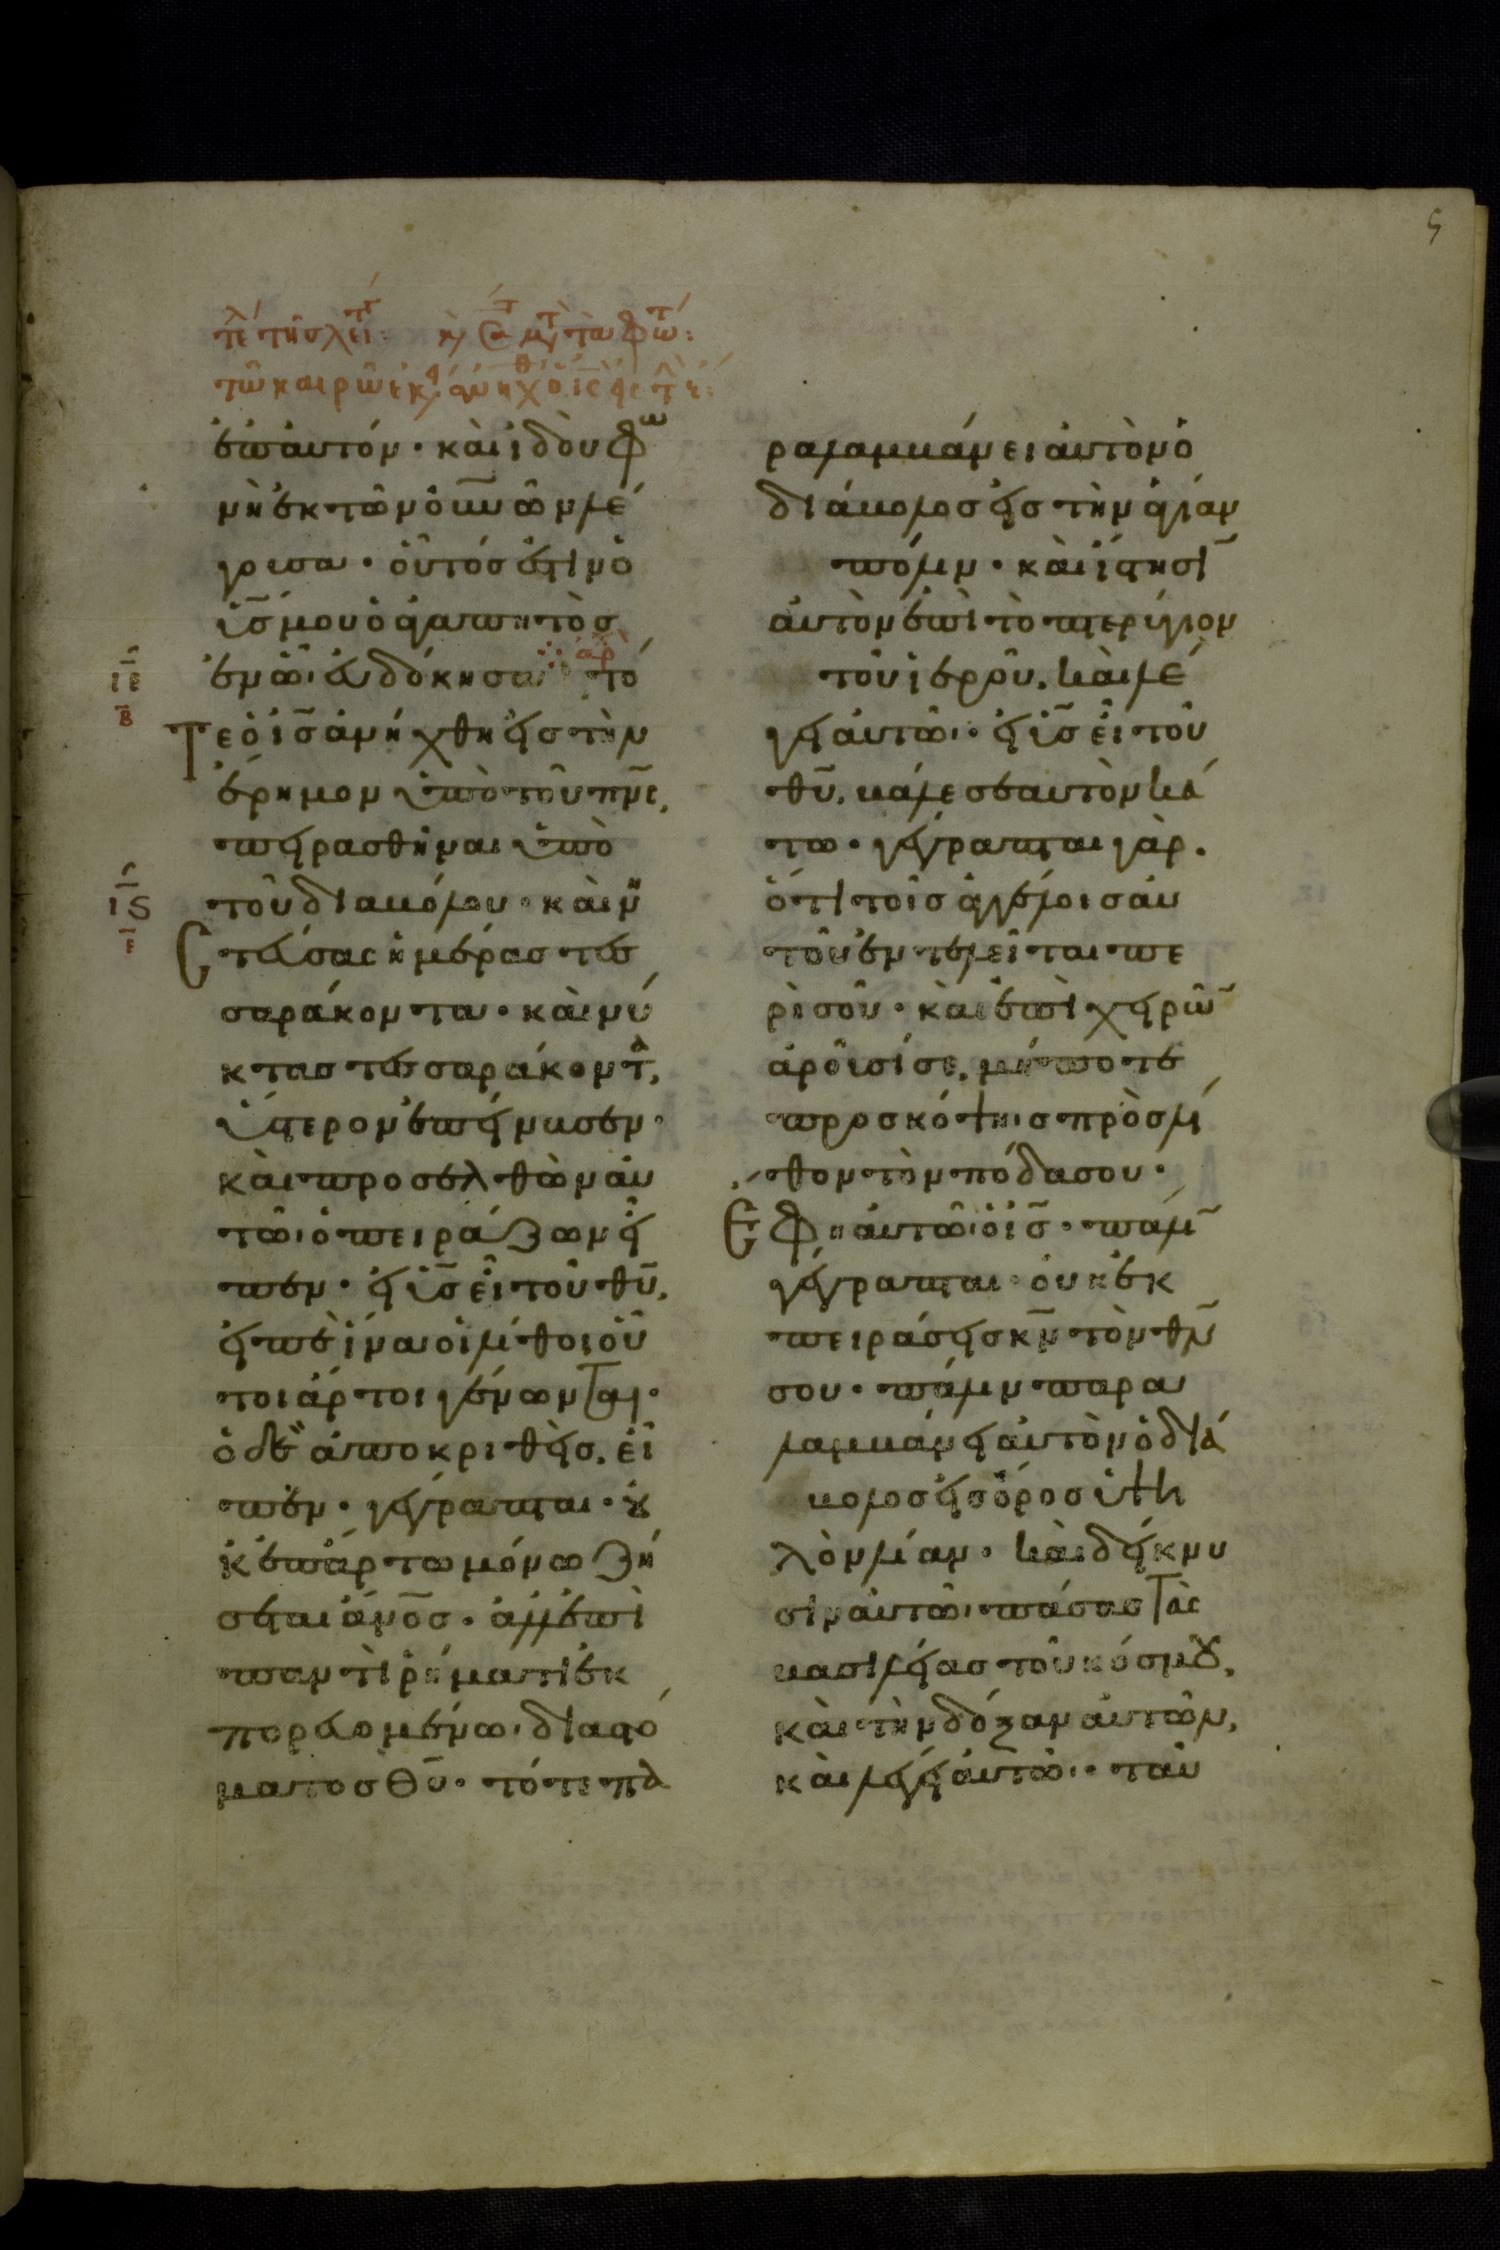 ἐπ' αὐτόν· καὶ ἰδοὺ φω
νὴ ἐκ τῶν οὐνῶν λέ
γουσα· οὗτός ἐστιν ὁ
υἱς μου ὁ ἀγαπητὸς
ἐν ᾧ εὐδόκησα ἀρ τό
ιε
β
Τε ὁ ις ἀνήχθη εἰς τὴν
ἔρημον ὑπὸ τοῦ πνς,
πειρασθῆναι ὑπὸ
ις
ε
τοῦ διαβόλου· καὶ νη
στεύσας ἡμέρας τεσ
σαράκοντα· καὶ νύ
κτας τεσσαράκοντα,
ὕστερον ἐπείνασεν·
καὶ προσελθὼν αὐ
τῶ ὁ πειράζων εἶ
πεν· εἰ υἱς εἶ τοῦ θυ,
εἰπὲ ἵνα οἱ λίθοι οὗ
τοι ἄρτοι γένωνται·
ὁ δὲ ἀποκριθεὶς, εἶ
πεν· γέγραπται· οὐ
κ ἐπ' ἄρτω μόνω ζή
σεται ἄνος· ἀλλ' ἐπὶ
παντὶ ῥήματι ἐκ
πορευομένω διαστό
ματος θυ· τότε πα
ραλαμβάνει αὐτὸν ὁ
διάβολος εἰς τὴν ἁγίαν
πόλιν· καὶ ἵστησι
αὐτὸν ἐπὶ τὸ πτερύγιον
τοῦ ἱεροῦ, καὶ λέ
γει αὐτῶ· εἰ υἱς εἶ τοῦ
θυ, βάλε σεαυτὸν κά
τω· γέγραπται γὰρ·
ὅτι τοῖς ἀγγέλοις αὐ
τοῦ ἐντελεῖται πε
ρὶ σοῦ· καὶ ἐπὶ χειρῶν
ἀροῦσί σε, μήποτε
προσκόψης πρὸς λί
θον τὸν πόδα σου·
Ἔφη αὐτῶ ὁ ις· πάλιν
γέγραπται· οὐκ ἐκ
πειράσεις κν τὸν θν
σου· πάλιν παρα
λαμβάνει αὐτὸν ὁ διά
βολος εἰς ὄρος ὑψη
λὸν λίαν· καὶ δείκνυ
σιν αὐτῶ πάσας τὰς
βασιλείας τοῦ κόσμου,
καὶ τὴν δόξαν αὐτῶν,
καὶ λέγει αὐτῶ· ταῦ